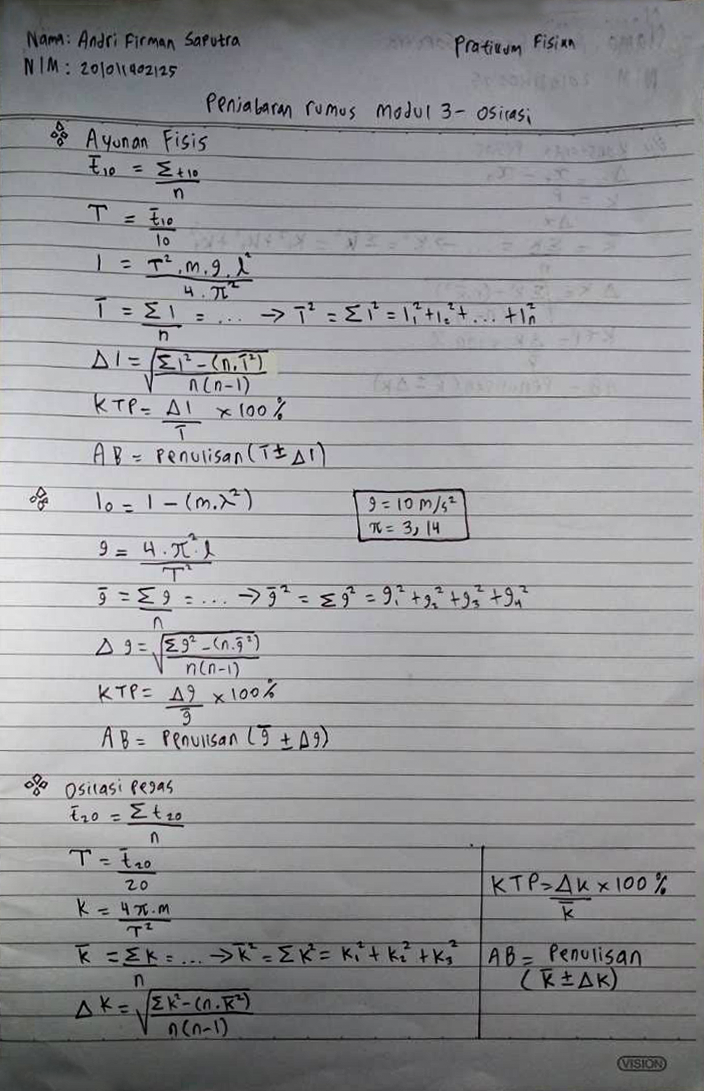 Nama: Andri Firman Saputra
Pratikum Fisika
NIM: 201011402125
Penjabaran rumus Modul 3 - Osilasi
Ayunan Fisis
t̄₁₀ = Σt₁₀/n
T = t̄₁₀/10
I = T².m.g.l²/4.π²
Ī = ΣI/n = ... → Ī² = ΣI² = I₁²+I₂²+...+Iₙ²
ΔI = √(ΣI²-(n.Ī²)/n(n-1))
KTP = ΔI/Ī × 100%
AB = Penulisan (Ī ± ΔI)
I₀ = I - (m.λ²)
g = 10 m/s²
π = 3,14
g = 4.π².l/T²
ḡ = Σg/n = ... → ḡ² = Σg² = g₁²+g₂²+g₃²+g₄²
Δg = √(Σg²-(n.ḡ²)/n(n-1))
KTP = Δg/ḡ × 100%
AB = Penulisan (ḡ ± Δg)
Osilasi Pegas
t̄₂₀ = Σt₂₀/n
T = t̄₂₀/20
K = 4π.m/T²
k̄ = Σk/n = ... → k̄² = Σk² = k₁²+k₂²+k₃²
Δk = √(Σk²-(n.k̄²)/n(n-1))
KTP = Δk/k̄ × 100%
AB = Penulisan
(k̄ ± Δk)
VISION